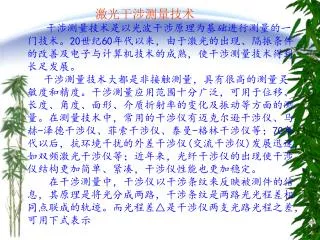 激光干涉测量技术
干涉测量技术是以光波干涉原理为基础进行测量的一
门技术。20世纪60年代以来，由于激光的出现、隔振条件
的改善及电子与计算机技术的成熟，使干涉测量技术得到
长足发展。
干涉测量技术大都是非接触测量，具有很高的测量灵
敏度和精度。干涉测量应用范围十分广泛，可用于位移、
长度、角度、面形、介质折射率的变化及振动等方面的测
量。在测量技术中，常用的干涉仪有迈克尔逊干涉仪、马
赫-泽德干涉仪、菲索干涉仪、泰曼-格林干涉仪等；70年
代以后，抗环境干扰的外差干涉仪(交流干涉仪)发展迅速，
如双频激光干涉仪等；近年来，光纤干涉仪的出现使干涉
仪结构更加简单、紧凑，干涉仪性能也更加稳定。
在干涉测量中，干涉仪以干涉条纹来反映被测件的信
息，其原理是将光分成两路，干涉条纹是两路光光程差相
同点联成的轨迹。而光程差△是干涉仪两支光路光程之差，
可用下式表示